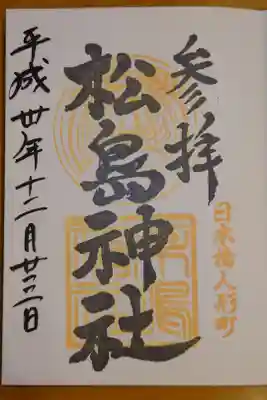 参拝
日本橋人形町
松島神社
平成卅年十二月廿二日